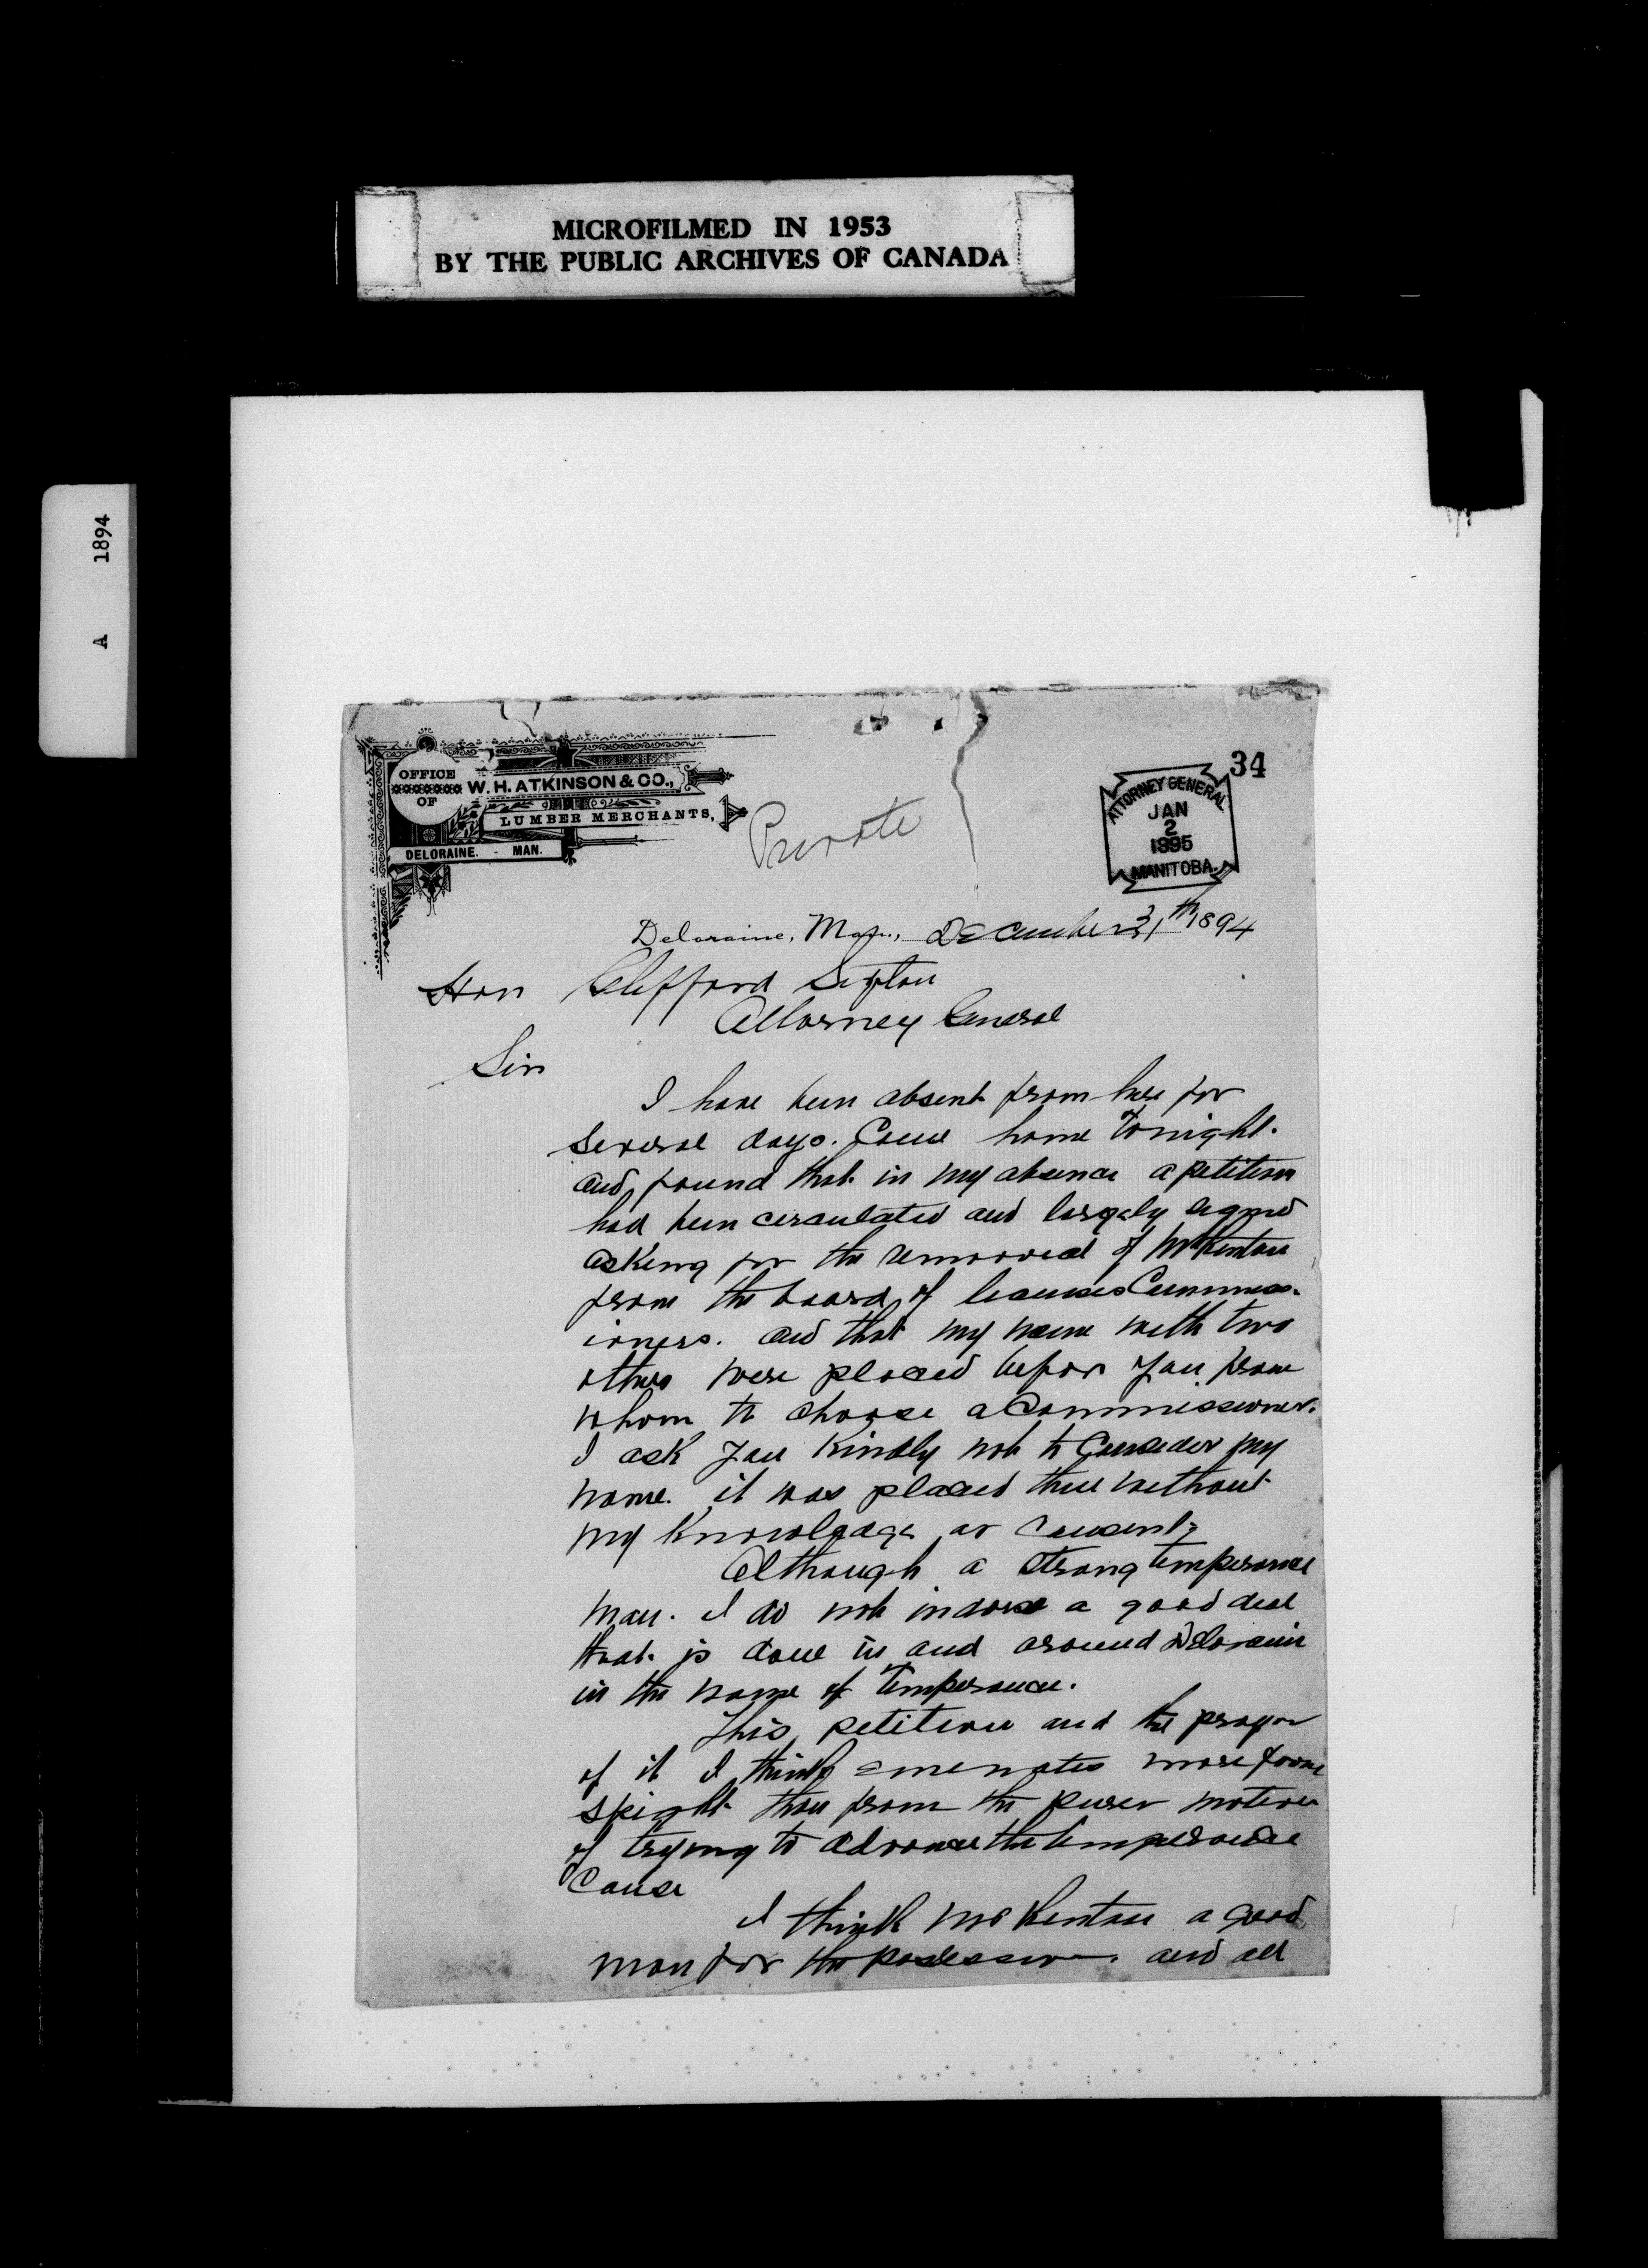 MICROFILMED IN 1953
BY THE PUBLIC ARCHIVES OF CANADA
A 1894
34
OFFICE
OF
W. H. ATKINSON & CO.,
LUMBER MERCHANTS,
DELORAINE. - MAN.
Private
ATTORNEY GENERAL
JAN
2
1895
MANITOBA.
Deloraine, Man., December 31th 1894
Hon Clifford Sifton
Attorney General
Sir
I have been absent from here for
several days. Came home tonight.
and found that in my absence a petition
had been circulated and largely signed
asking for the removal of Mr Renton
from the board of licenses Commiss-
ioners. and that my name with two
others were placed before you from
whom to choose a Commissioner.
I ask you kindly not to Consider my
name. it was placed there without
my knowledge or Consent.
Although a strong temperance
man. I do not indorse a good deal
that is done in and around Deloraine
in the name of Temperance.
This petition and the prayer
of it I think emenates more from
spight than from the purer motive
of trying to advance the temperance
Cause
I think Mr Renton a good
man for the and all